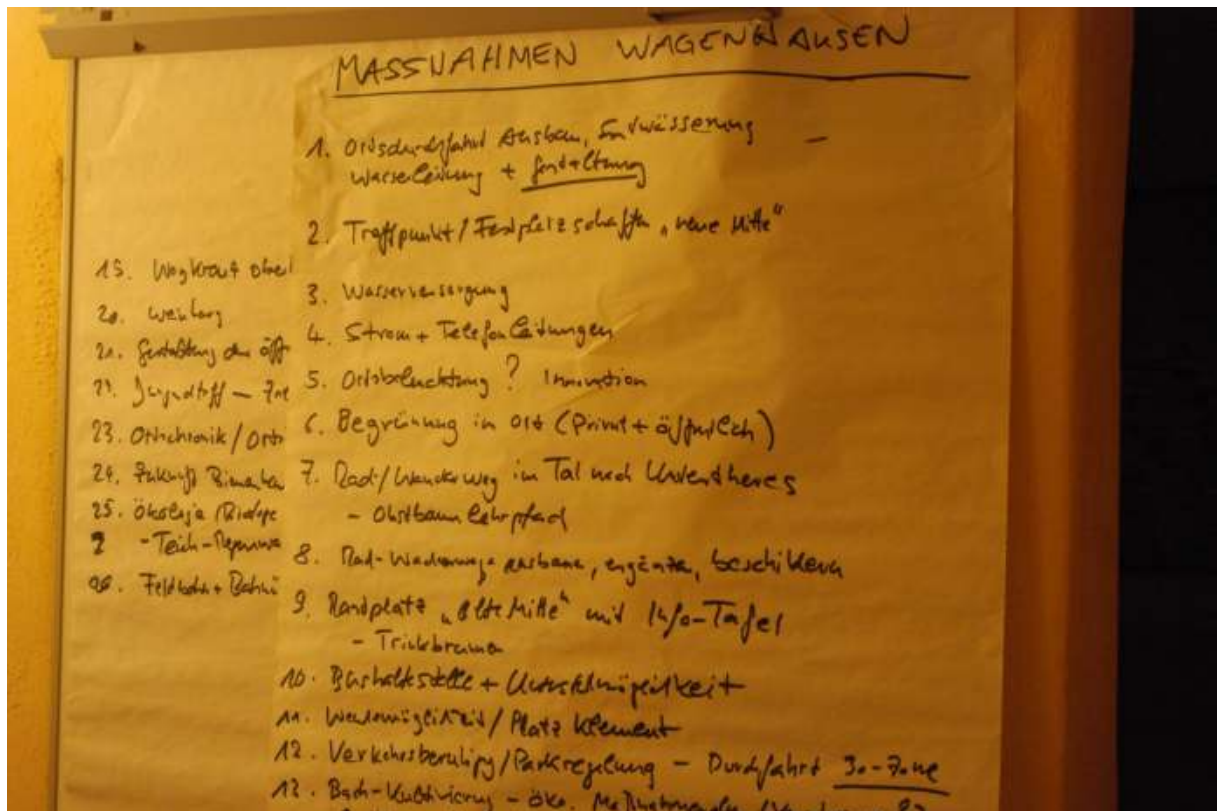 MASSNAHMEN WAGENHAUSEN
1. Ortsdurchfahrt Ausbau, Entwässerung
Wasserleitung + Gestaltung
2. Treffpunkt / Festplatz schaffen „neue Mitte"
3. Wasserversorgung
4. Strom + Telefonleitungen
5. Ortsbeleuchtung ? Innovation
6. Begrünung im Ort (Privat + öffentlich)
7. Rad-/Wanderweg im Tal nach Untertheres
- Obstbaumlehrpfad
8. Rad-Wanderwege ausbauen, ergänzen, beschildern
9. Rastplatz „alte Mitte" mit Info-Tafel
- Trinkbrunnen
10. Bushaltestelle + Unterstellmöglichkeit
11. Wendemöglichkeit / Platz Klement
12. Verkehrsberuhig / Parkregelung - Durchfahrt 30-Zone
13. Bach- - öko.
19.
20. Weinberg
21. Gestaltung der öff
22. Jugendtreff -
23. Ortschronik / Orts
24. Zukunft
25. Ökologie / Biotope
? - Teich-
26. Feldbahn +